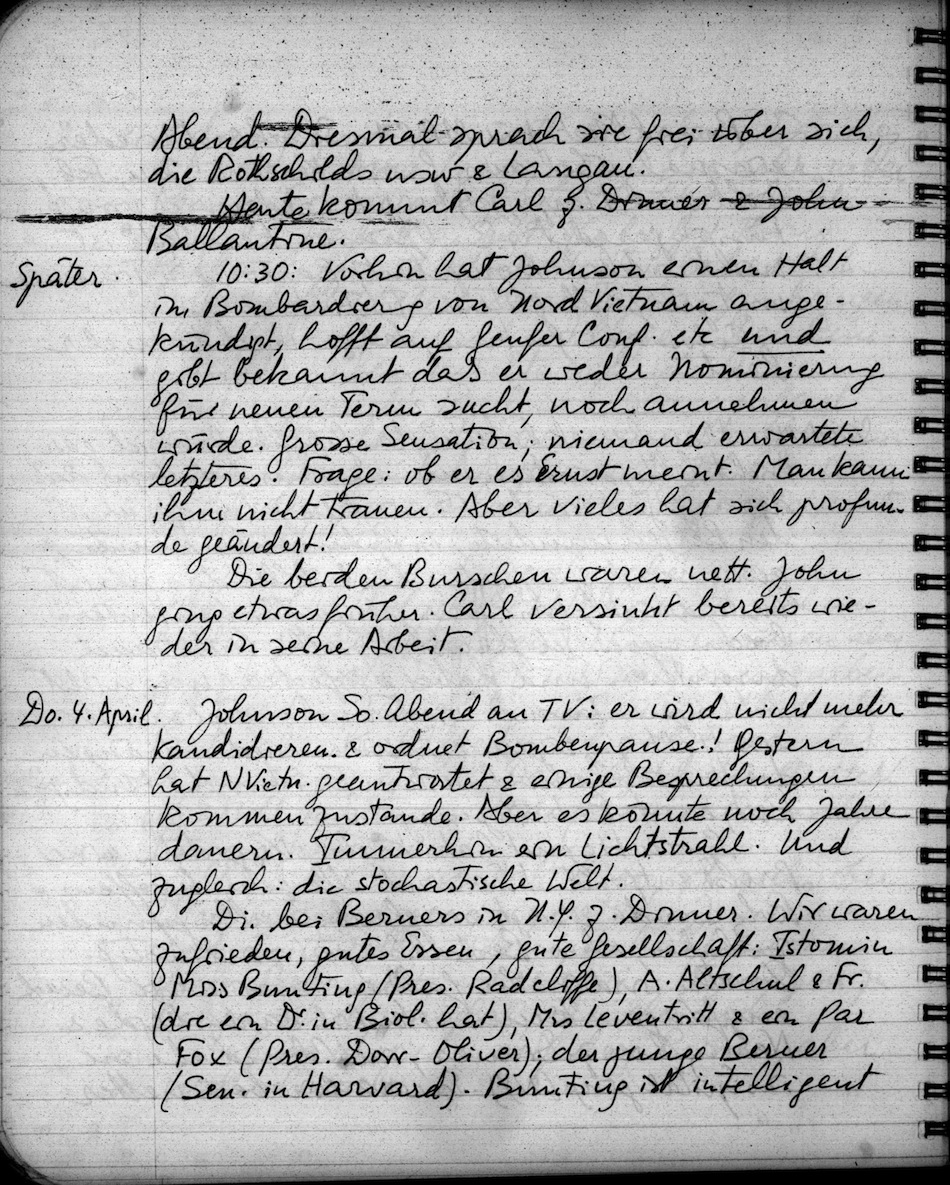 Abend. Diesmal sprach sie frei über sich,
die Rothschilds usw & Langau.
Heute kommt Carl z. Dinner & John
Ballantine.
Später. 10:30: Vorhin hat Johnson einen Halt
im Bombardierg von Nord Vietnam ange-
kündigt, hofft auf Genfer Conf. etc und
gibt bekannt dass er weder Nominierung
für neuen Term sucht, noch annehmen
würde. Grosse Sensation; niemand erwartete
letzteres. Frage: ob er es Ernst meint. Man kann
ihm nicht trauen. Aber vieles hat sich profun-
de geändert!
Die beiden Burschen waren nett. John
ging etwas früher. Carl versinkt bereits wie-
der in seine Arbeit.
Do. 4. April. Johnson So. Abend an TV: er wird nicht mehr
kandidieren. & ordnet Bombenpause.! Gestern
hat NVietn. geantwortet & einige Besprechungen
kommen zustande. Aber es könnte noch Jahre
dauern. Immerhin ein Lichtstrahl. Und
zugleich: die stochastische Welt.
Di. bei Berners in N.Y. z. Dinner. Wir waren
zufrieden, gutes Essen, gute Gesellschaft: Istomin
Miss Bunting (Pres. Radcliffe), A. Altschul & Fr.
(die ein Dr. in Biol. hat), Mrs Leventritt & ein Par
Fox (Pres. Dorr-Oliver); der junge Berner
(Sen. in Harvard). Bunting ist intelligent